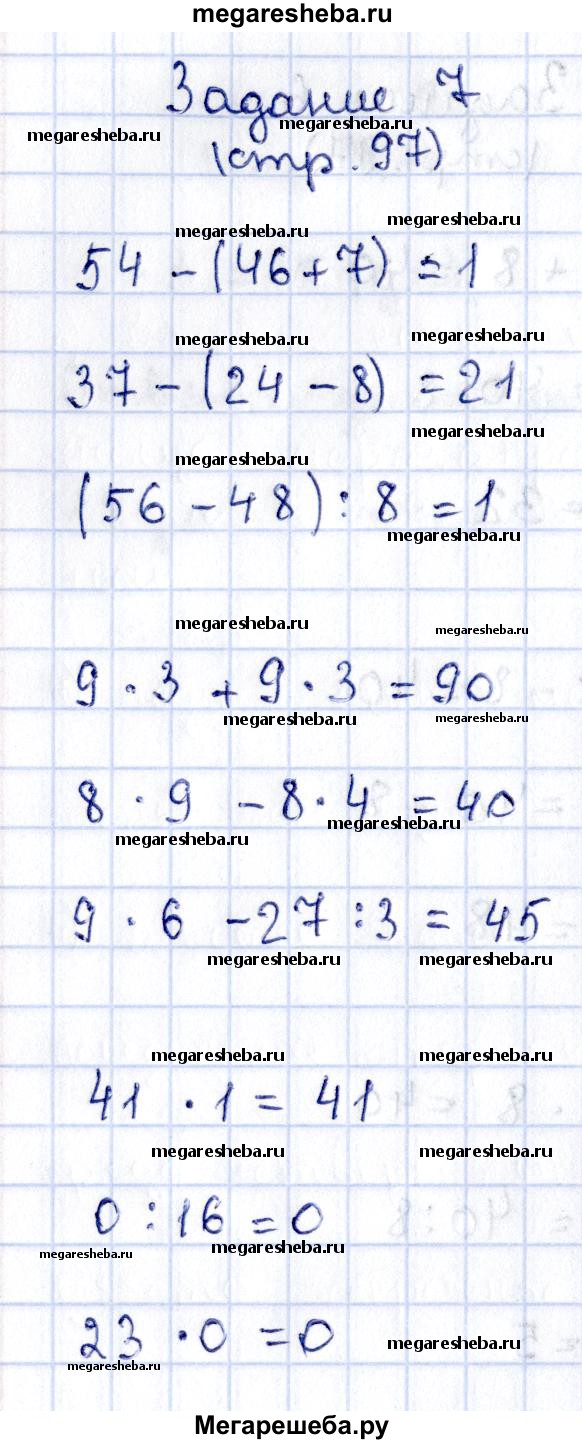 megaresheba.ru
Задание 7
megaresheba.ru
megaresheba.ru
(стр. 97)
megaresheba.ru
megaresheba.ru
54 - (46+7) = 1
megaresheba.ru
megaresheba.ru
37 - (24 - 8) = 21
megaresheba.ru
megaresheba.ru
(56 - 48) : 8 = 1
megaresheba.ru
megaresheba.ru
megaresheba.ru
9 · 3 + 9 · 3 = 90
megaresheba.ru
megaresheba.ru
8 · 9 - 8 · 4 = 40
megaresheba.ru
megaresheba.ru
9 · 6 - 27 : 3 = 45
megaresheba.ru
megaresheba.ru
megaresheba.ru
megaresheba.ru
41 · 1 = 41
megaresheba.ru
megaresheba.ru
0 : 16 = 0
megaresheba.ru
megaresheba.ru
23 · 0 = 0
megaresheba.ru
megaresheba.ru
Мегарешеба.ру